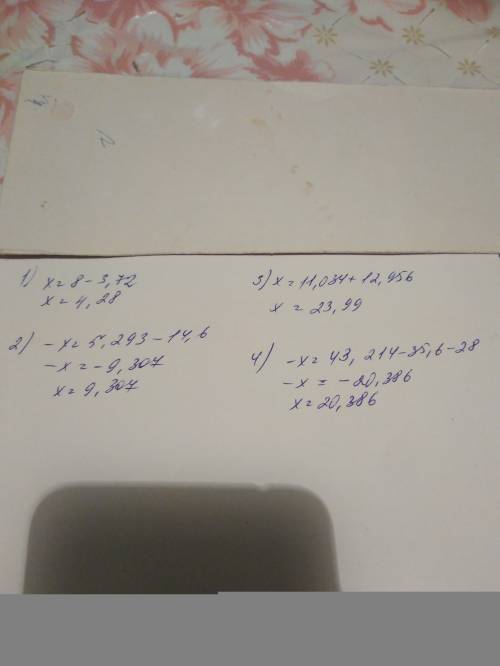 1) x = 8 - 3,72
x = 4,28
2) -x = 5,293 - 14,6
-x = -9,307
x = 9,307
3) x = 11,034 + 12,956
x = 23,99
4) -x = 43,214 - 35,6 - 28
-x = -20,386
x = 20,386